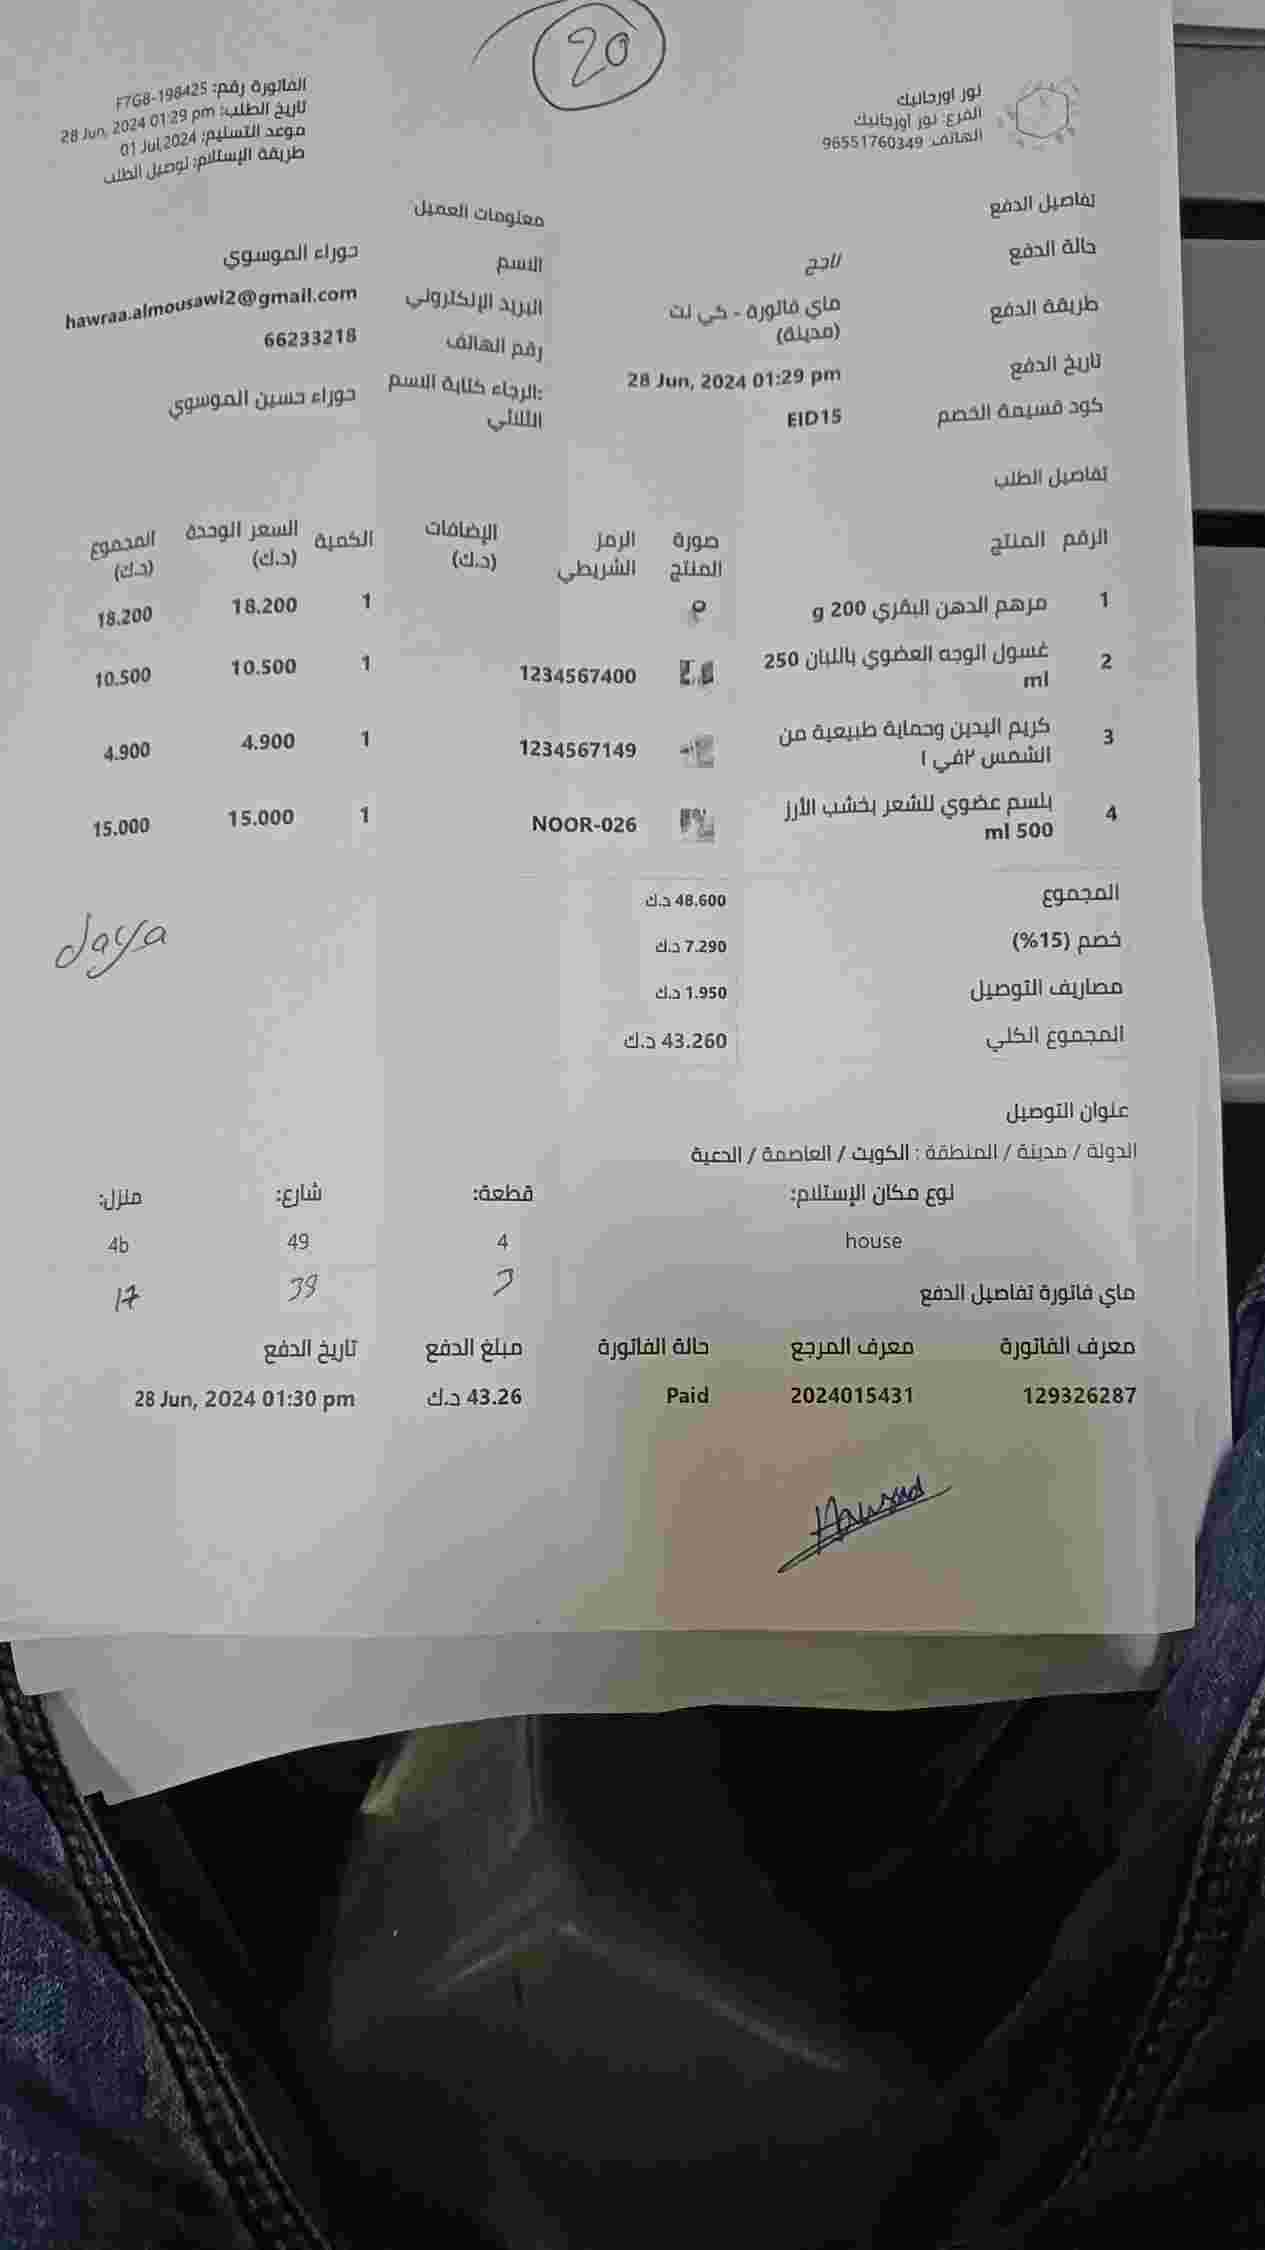 20
نور اورجانيك
الفرع: نور اورجانيك
الهاتف: 96551760349
الفاتورة رقم: F7G8-198425
تاريخ الطلب: 28 Jun, 2024 01:29 pm
موعد التسليم: 01 Jul,2024
طريقة الإستلام: توصيل الطلب
تفاصيل الدفع
حالة الدفع ناجح
طريقة الدفع ماي فاتورة - كي نت
(مدينة)
تاريخ الدفع 28 Jun, 2024 01:29 pm
كود قسيمة الخصم EID15
معلومات العميل
الاسم حوراء الموسوي
البريد الإلكتروني hawraa.almousawi2@gmail.com
رقم الهاتف 66233218
الرجاء كتابة الاسم: حوراء حسين الموسوي
الثلاثي
تفاصيل الطلب
الرقم المنتج صورة المنتج الرمز الشريطي الإضافات (د.ك) الكمية السعر الوحدة (د.ك) المجموع (د.ك)
1 مرهم الدهن البقري 200 g 1 18.200 18.200
2 غسول الوجه العضوي باللبان 250 1234567400 1 10.500 10.500
ml
3 كريم اليدين وحماية طبيعية من 1234567149 1 4.900 4.900
الشمس ٢في ١
4 بلسم عضوي للشعر بخشب الأرز NOOR-026 1 15.000 15.000
500 ml
المجموع 48.600 د.ك
خصم (15%) 7.290 د.ك
Jaya
مصاريف التوصيل 1.950 د.ك
المجموع الكلي 43.260 د.ك
عنوان التوصيل
الدولة / مدينة / المنطقة : الكويت / العاصمة / الدعية
نوع مكان الإستلام: قطعة: شارع: منزل:
house 4 49 4b
39 17
ماي فاتورة تفاصيل الدفع
معرف الفاتورة معرف المرجع حالة الفاتورة مبلغ الدفع تاريخ الدفع
129326287 2024015431 Paid 43.26 د.ك 28 Jun, 2024 01:30 pm